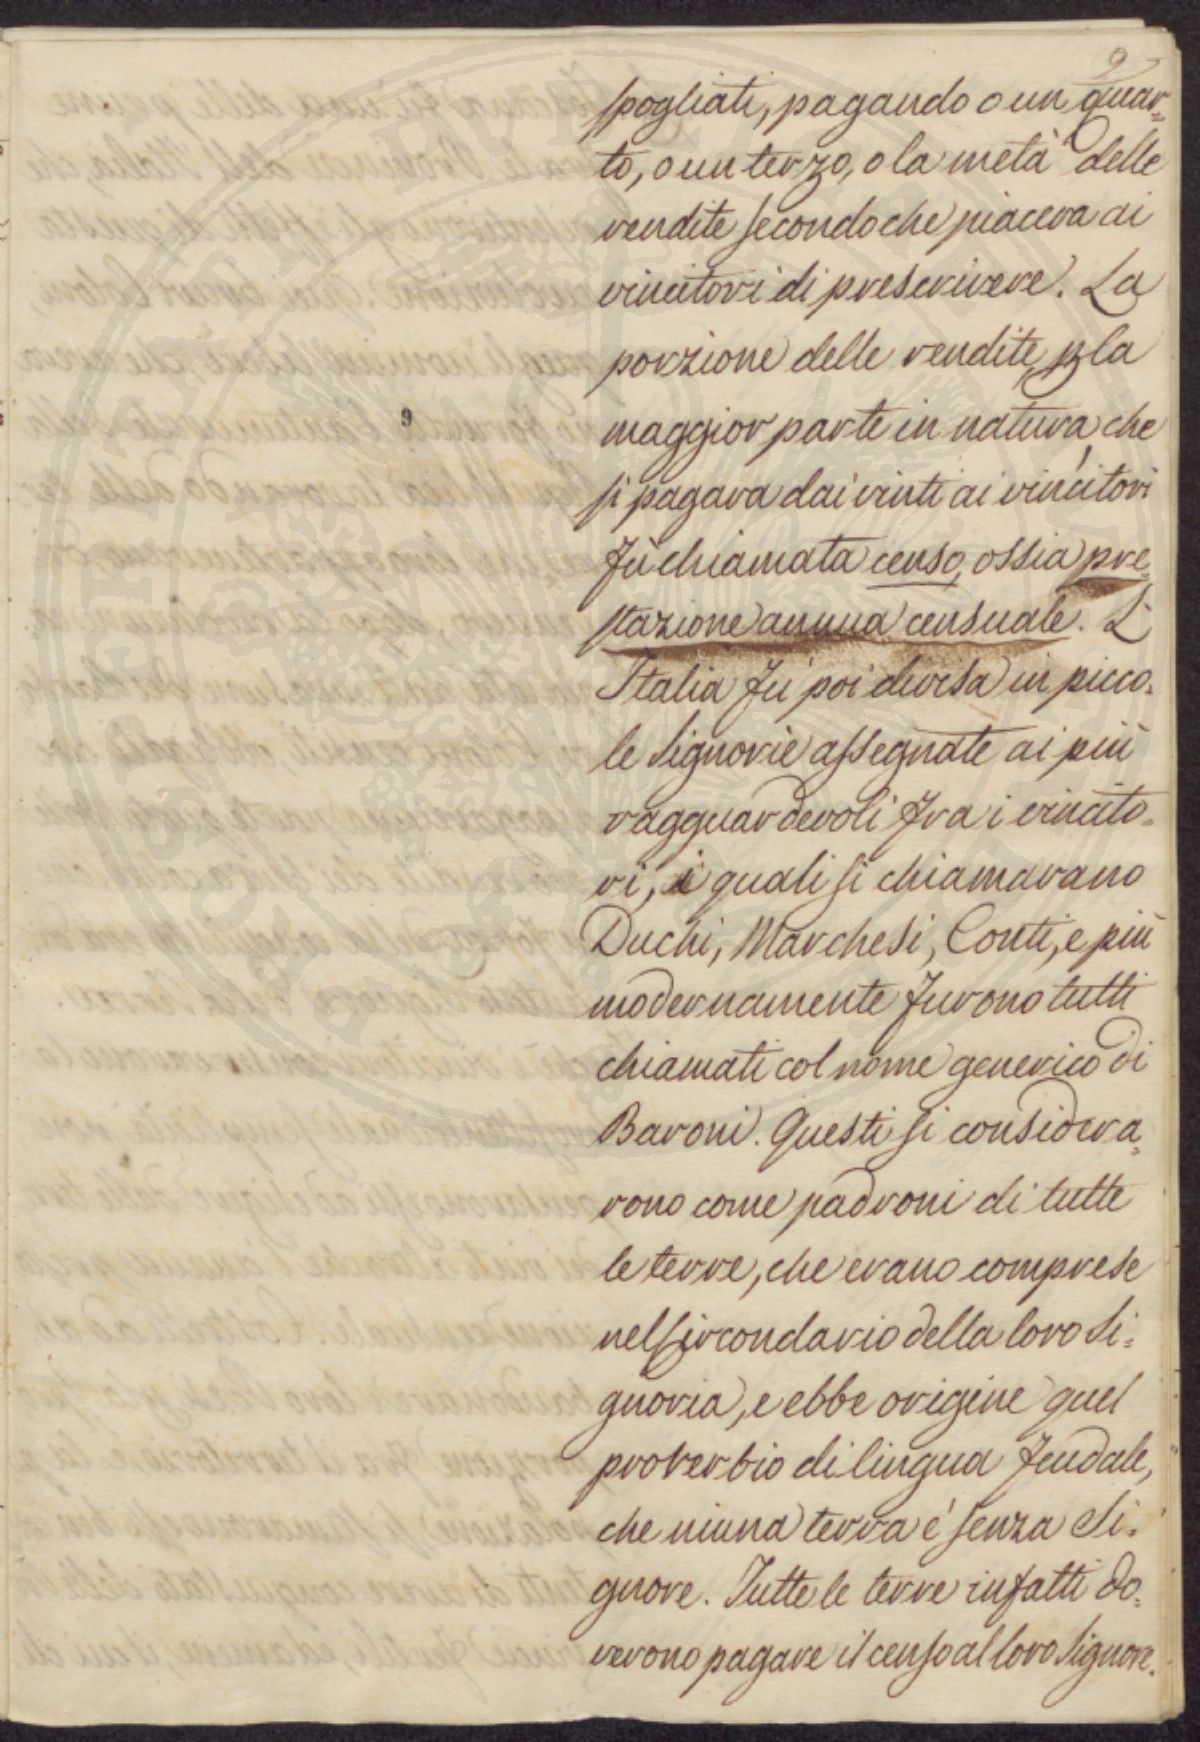 9
spogliati, pagando o un quar=
to, o un terzo, o la metà delle
rendite secondo che piaceva ai
vincitori di prescrivere. La
porzione delle rendite, p la
maggior parte in natura, che
si pagava dai vinti ai vincitori
fù chiamata censo, ossia pre=
stazione annua censuale. L'
Italia fù poi divisa in picco=
le Signorie assegnate ai più
ragguardevoli fra i vincito=
ri, i quali si chiamavano
Duchi, Marchesi, Conti, e più
modernamente furono tutti
chiamati col nome generico di
Baroni. Questi si considera=
rono come padroni di tutte
le terre, che erano comprese
nel Circondario della loro Si=
gnoria, e ebbe origine quel
proverbio di lingua feudale,
che niuna terra é senza Si=
gnore. Tutte le terre infatti do=
verono pagare il censo al loro Signore.
9